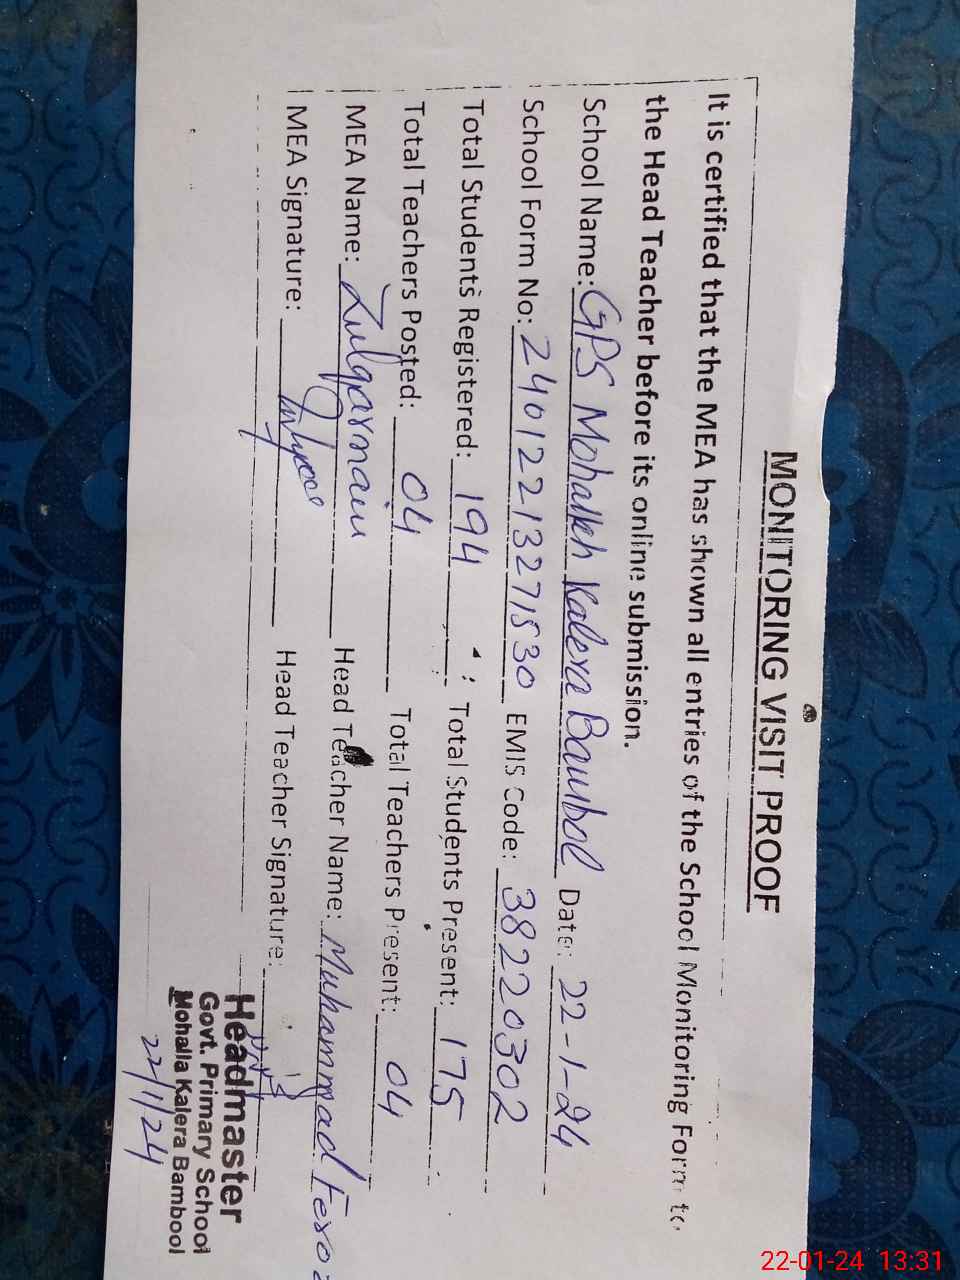 MONITORING VISIT PROOF
It is certified that the MEA has shown all entries of the School Monitoring Form to
the Head Teacher before its online submission.
School Name: GPS Mohallah Kalera Bambol Date: 22-1-24
School Form No: 24012213271530 EMIS Code: 38220302
Total Students Registered: 194 Total Students Present: 175
Total Teachers Posted: 04 Total Teachers Present: 04
MEA Name: Zulqarnain Head Teacher Name: Muhammad
MEA Signature: Head Teacher Signature:
Headmaster
Govt. Primary School
Mohalla Kalera Bambool
22/1/24
22-01-24 13:31